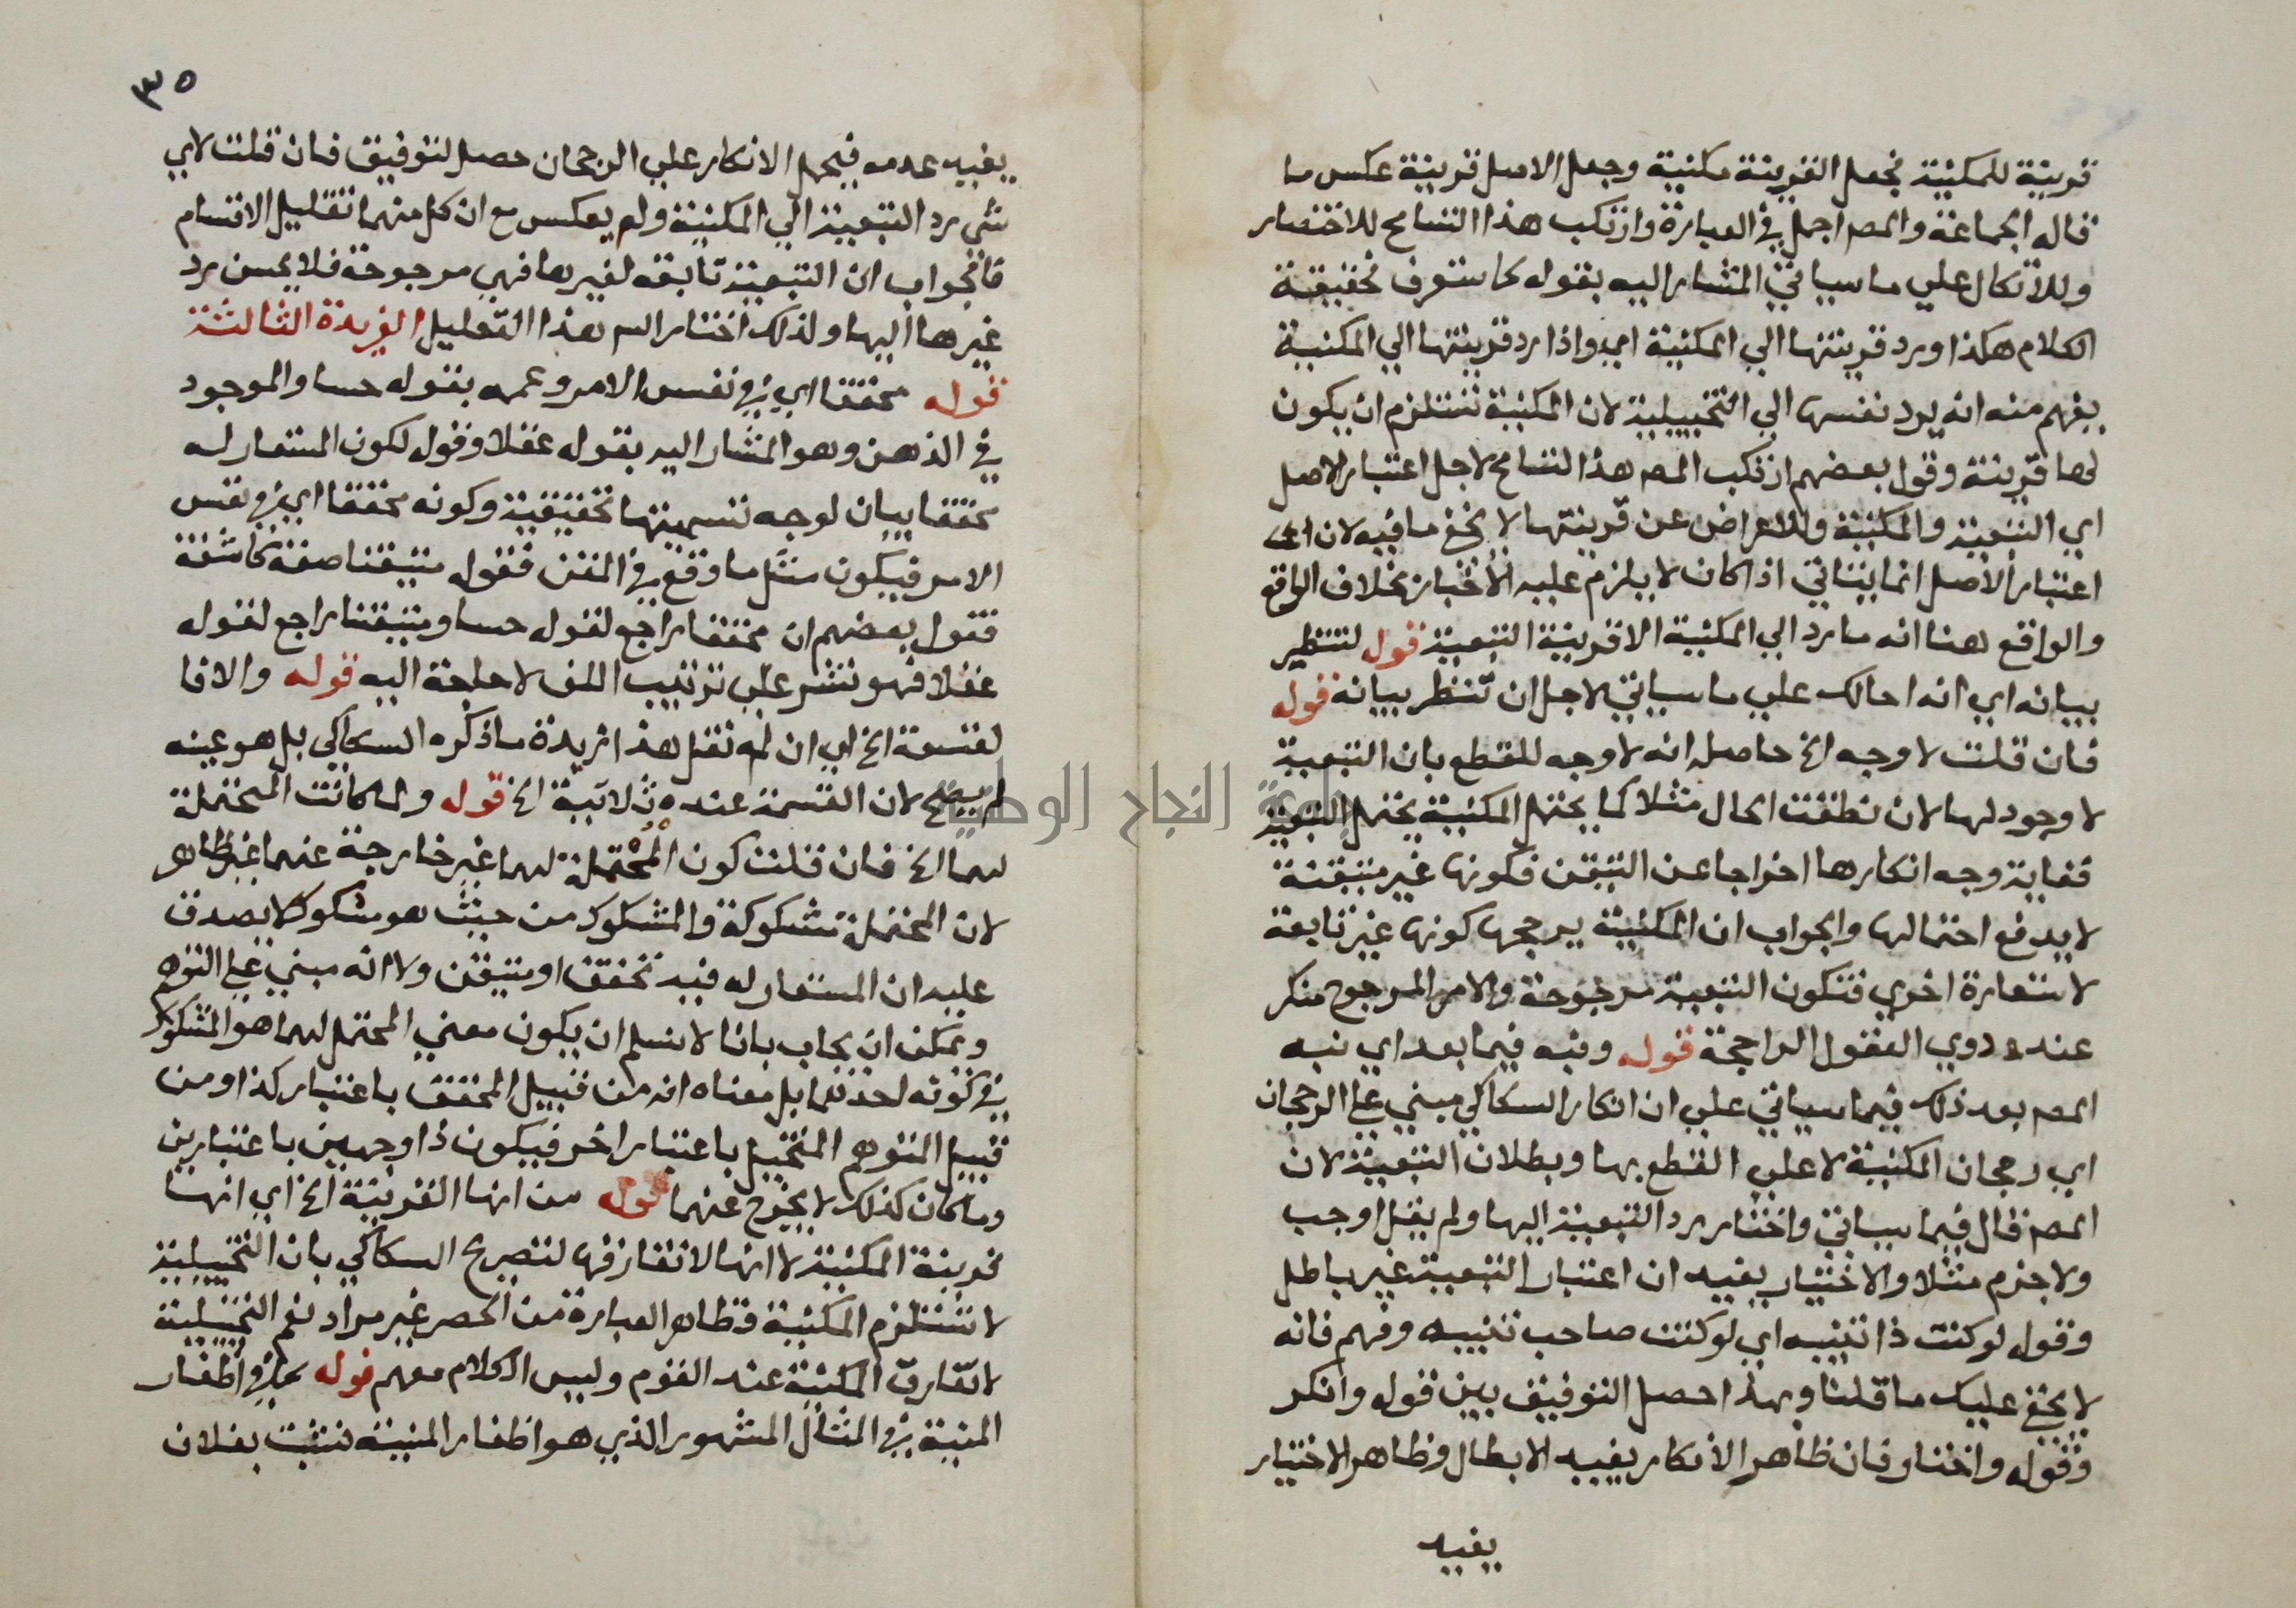 قرينية للمكنية فجعل القرينة مكنية وجعل الاصل قرينة عكس ما
قاله الجماعة والمص اجمل في العبارة وارتكب هذا التسامح للاختصار
وللاتكال علي ما سياتي المشار اليه بقوله كما ستعرف تحقيقة
الكلام هكذا ورد قرينتها الي المكنية اي واذا رد قرينتها الي المكنية
يفهم منه انه يرد نفسها الي التخييلية لان المكنية تستلزم ان يكون
لها قرينة وقول بعضهم ارتكب المص هذا التسامح لاجل اعتبار الاصل
اي التبعية والمكنية وللاعراض عن قرينتها لا يخفي ما فيه لان
اعتبار الاصل انما يتاتي اذا كان لا يلزم عليه الاخبار بخلاف الواقع
والواقع هنا انه ما رد الي المكنية الا قرينة التبعية قوله لتنتظر
بيانه اي انه احالك علي ما سياتي لاجل ان تنتظر بيانه قوله
فان قلت لا وجه الخ حاصله انه لا وجه للقطع بان التبعية
لا وجود لها لان نطقت الحال مثلا كما يحتمل المكنية يحتمل التبعية
فغاية وجه انكارها اخراجا عن التيقن فكونها غير متيقنة
لا يدفع احتمالها والجواب ان المكنية يرجحها كونها غير تابعة
لاستعارة اخري فتكون التبعية مرجوحة والامر المرجوح منكر
عند ذوي العقول الراجحة قوله ونبه فيما بعد اي نبه
المص بعد ذلك فيما سياتي علي ان انكار السكاكي مبني علي الرجحان
اي رجحان المكنية لا علي القطع بها وبطلان التبعية لان
المص قال فيما سياتي واختار رد التبعية اليها ولم يقل اوجب
ولا جزم مثلا والاختيار يفيد ان اعتبار التبعية غير باطل
وقوله لو كنت ذا تنبيه اي لو كنت صاحب تنبيه وفهم فانه
لا يخفي عليك ما قلنا وبهذا حصل التوفيق بين قوله وانكر
وقوله واختار فان ظاهر الانكار يفيد الابطال وظاهر الاختيار
يفيد
٣٥
يفيد عدمه فيحمل الانكار علي الرجحان حصل التوفيق فان قلت لاي
شي رد التبعية الي المكنية ولم يعكس مع ان كل منهما تقليل الاقسام
فالجواب ان التبعية تابعة لغيرها فهي مرجوحة فلا يحسن رد
غيرها اليها ولذلك اختار الس هذا التعليل الفريدة الثالثة
قوله محققا اي في نفس الامر وعمه بقوله حسا والموجود
في الذهن وهو المشار اليه بقوله عقلا وقوله لكون المستعار له
محققا بيان لوجه تسميتها تحقيقية وكونه محققا اي في نفس
الامر فيكون مثل ما وقع في المتن فقوله متيقنا صفة كاشفة
فقول بعضهم ان محققا راجع لقوله حسا ومتيقنا راجع لقوله
عقلا فهو نشر علي ترتيب اللف لا حاجة اليه قوله والا فا
لقسمة الخ اي ان لم نقل هذا زبدة ما ذكره السكاكي بل هو عينه
لم يصح لان القسمة عنده ثلاثية الخ قوله ولما كانت المحتملة
لهما الخ فان قلت كون المحتملة لهما غير خارجة عنهما غير ظاهر
لان المحتملة مشكوكة والمشكوك من حيث هو مشكوك لا يصدق
عليه ان المستعار له فيه تحقق او متيقن ولا انه مبني علي التوهم
ويمكن ان يجاب بانا لا نسلم ان يكون معني المحتمل لهما هو المشكوك
في كونه لاحدهما بل معناه انه من قبيل المحقق باعتبار كذا ومن
قبيل المتوهم المتخيل باعتبار اخر فيكون ذا وجهين باعتبارين
وما كان كذلك لا يخرج عنهما قوله من انها القرينة الخ اي انها
قرينة المكنية لا انها لا تفارقها لتصريح السكاكي بان التخييلية
لا تستلزم المكنية فظاهر العبارة من الحصر غير مراد نعم التخييلية
لا تفارق المكنية عند القوم وليس الكلام معهم قوله كما في اظفار
المنية في المثال المشهور الذي هو اظفار المنية نشبت بفلان
جامعة النجاح الوطنية